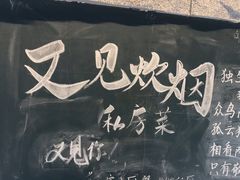 又见炊烟
私房菜
又见你!
独
众鸟
孤云
相看
只有